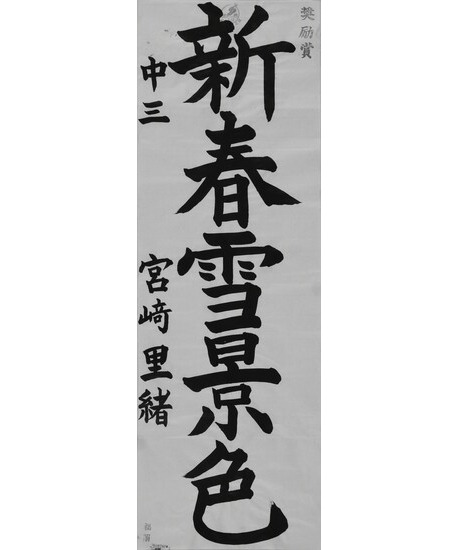 奨励賞
新春雪景色
中三
宮﨑里緒